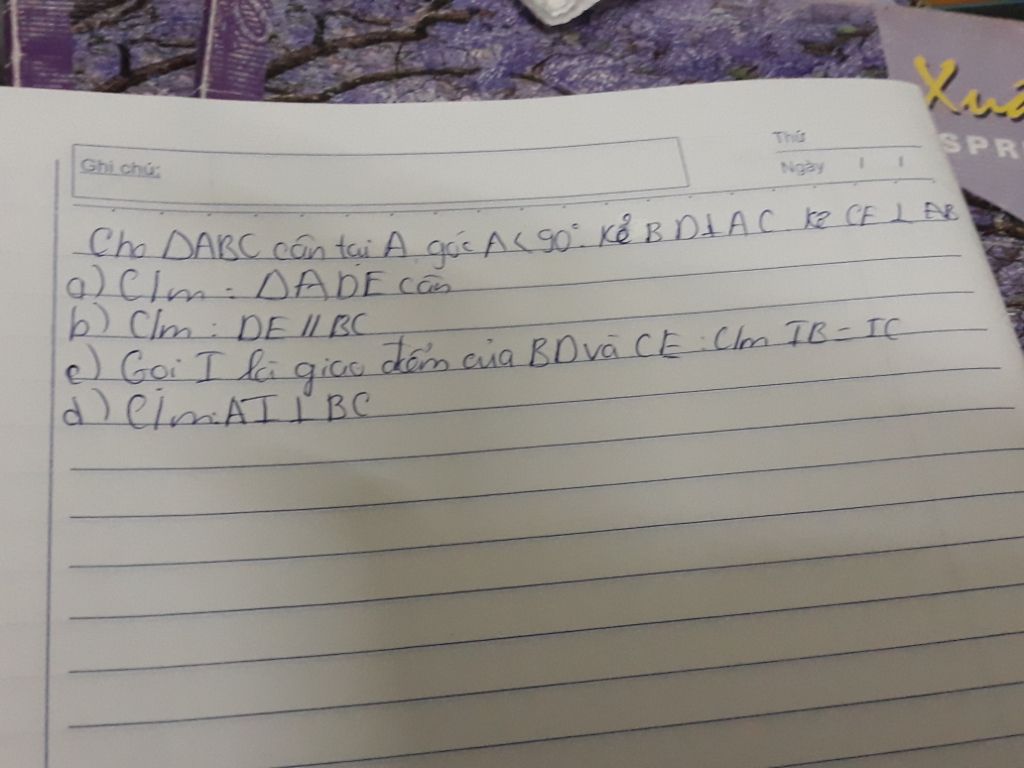 Xuâ
SPR
Ghi chú:
Thứ
Ngày / /
Cho ΔABC cân tại A góc A < 90°. Kẻ BD⊥AC kẻ CE ⊥ AB
a) C/m : ΔADE cân
b) C/m : DE // BC
c) Gọi I là giao điểm của BD và CE : C/m IB = IC
d) C/m: AI ⊥ BC